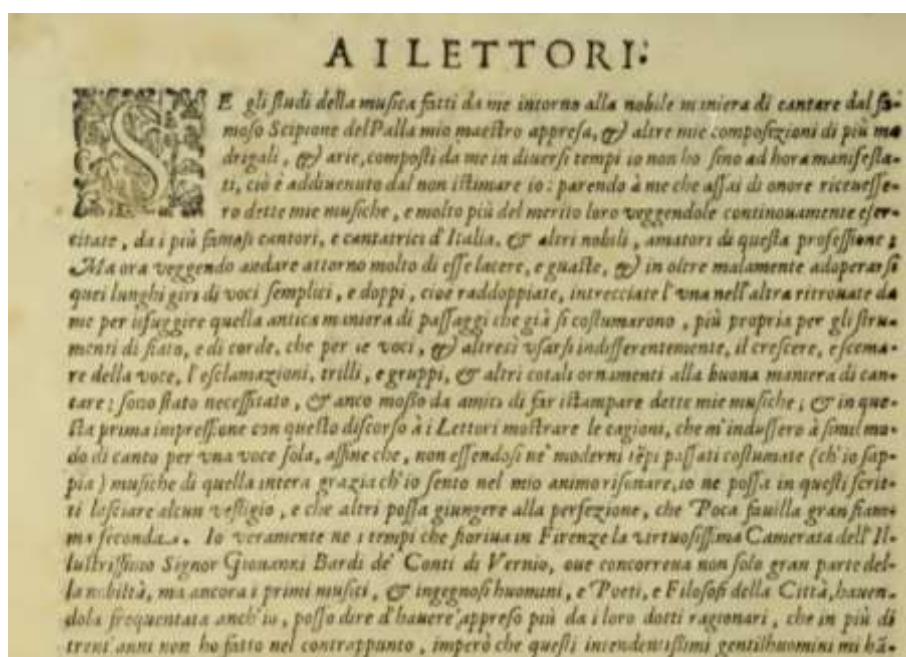 A I LETTORI:
SE gli ſtudi della muſica fatti da me intorno alla nobile maniera di cantare dal fa-
moſo Scipione del Palla mio maeſtro appreſa, & altre mie compoſizioni di più ma
drigali, & arie, compoſti da me in diuerſi tempi io non ho ſino ad hora manifeſta-
ti, ciò è addiuenuto dal non iſtimare io: parendo à me che aſſai di onore riceueſſe-
ro dette mie muſiche, e molto più del merito loro veggendole continouamente eſer-
citate, da i più famoſi cantori, e cantatrici d'Italia, & altri nobili, amatori di queſta profeſſione;
Ma ora veggendo andare attorno molto di eſſe lacere, e guaſte, & in oltre malamente adoperarſi
quei lunghi giri di voci ſemplici, e doppi, cioè raddoppiate, intrecciate l'vna nell'altra ritrouate da
me per isfuggire quella antica maniera di paſſaggi che già ſi coſtumarono, più propria per gli ſtru-
menti di fiato, e di corde, che per le voci, & altresì vſarſi indifferentemente, il creſcere, e ſcema-
re della voce, l'eſclamazioni, trilli, e gruppi, & altri cotali ornamenti alla buona maniera di can-
tare: ſono ſtato neceſſitato, & anco moſſo da amici di far iſtampare dette mie muſiche; & in que-
ſta prima impreſſione con queſto diſcorſo à i Lettori moſtrare le cagioni, che m'induſſero à ſimil mo-
do di canto per vna voce ſola, affine che, non eſſendoſi ne' moderni tẽpi paſſati coſtumate (ch'io ſap-
pia) muſiche di quella intera grazia ch'io ſento nel mio animo riſonare, io ne poſſa in queſti ſcrit-
ti laſciare alcun veſtigio, e che altri poſſa giungere alla perfezione, che Poca fauilla gran fiam-
ma ſeconda. Io veramente ne i tempi che fioriua in Firenze la virtuoſiſſima Camerata dell'Il-
luſtriſſimo Signor Giouanni Bardi de' Conti di Vernio, oue concorreua non ſolo gran parte del-
la nobiltà, ma ancora i primi muſici, & ingegnoſi huomini, e Poeti, e Filoſofi della Città, hauen-
dola frequentata anch'io, poſſo dire d'hauere appreſo più da i loro dotti ragionari, che in più di
trent'anni non ho fatto nel contrappunto, imperò che queſti intendentiſſimi gentilhuomini mi hã-